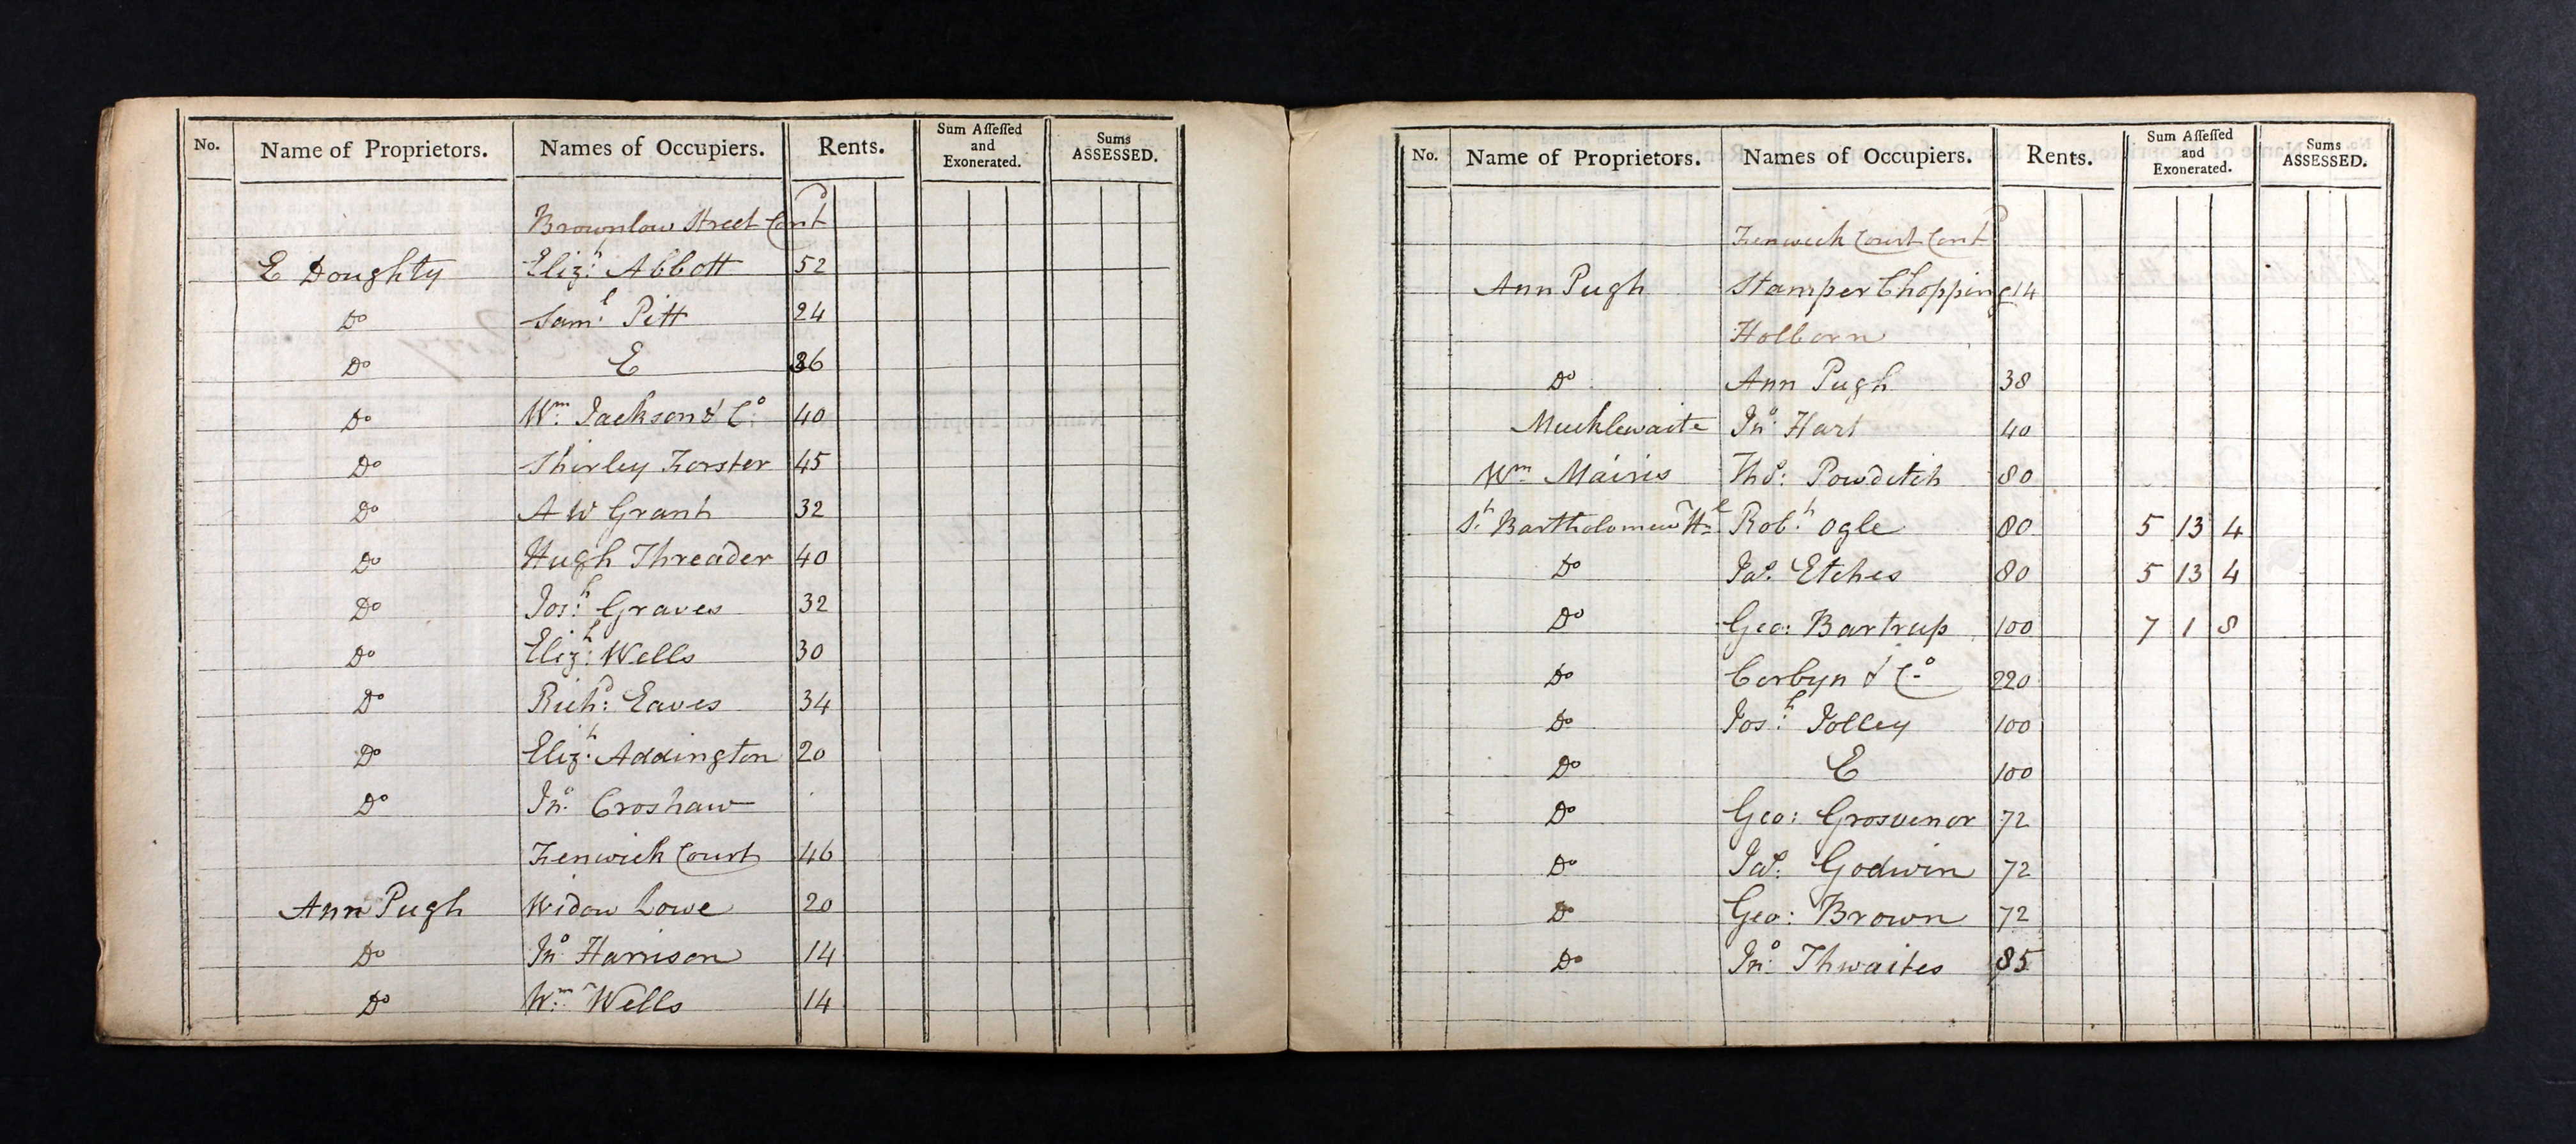 No. Name of Proprietors. Names of Occupiers. Rents. Sum Aſſeſſed and Exonerated. Sums ASSESSED.
Brownlow Street Contd
E Doughty Elizh: Abbott 52
Do Saml: Pitt 24
Do E 36
Do Wm: Jackson & Co: 40
Do Shirley Forster 45
Do A W Grant 32
Do Hugh Threader 40
Do Josh: Graves 32
Do Elizh: Wells 30
Do Richd: Eaves 34
Do Elizh: Addington 20
Do Jno. Croshaw
Fenwick Court 46
Ann Pugh Widow Lowe 20
Do Jno Harrison 14
Do Wm: Wells 14
No. Name of Proprietors. Names of Occupiers. Rents. Sum Aſſeſſed and Exonerated. Sums ASSESSED.
Fenwick Court Contd
Ann Pugh Stamper Chopping 14
Holborn
Do Ann Pugh 38
Mucklewaite Jno. Hart 40
Wm Mairis Thos: Powditch 80
St. Bartholomew Hl Robt: Ogle 80 5 13 4
Do Jas. Etches 80 5 13 4
Do Geo: Bartrup 100 7 1 8
Do Corbyn & Co 220
Do Josh: Jolley 100
Do E 100
Do Geo: Grosvenor 72
Do Jas. Godwin 72
Do Geo: Brown 72
Do Jno. Thwaites 85